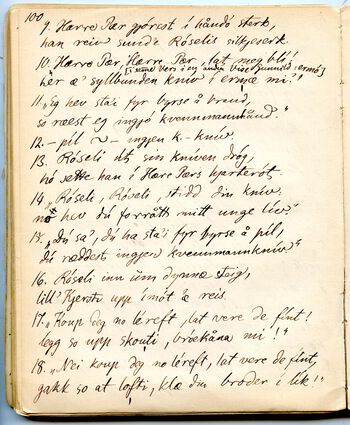 100
9. Herre Pær gjorest i håndó sterk,
han reiv sunde Róselis silkjeserk.
10. Herre Pær, Herre Pær, lat meg bli!
hér æ syllbunden kniv i ermæ mi!"
11. „Eg hev stai fyr byrse å brand,
so ræest eg ingjó kvennmannhånd."
12. – pil ~ – ingjen k.-kniv.
13. Róseli út sin kniven dróg,
hó sette han i Hærc Pærs hjarterót.
14. „Róseli, Róseli, stidd din kniv,
no hev du forrått mitt unge liv."
15. „Dú sa', dú ha stai fyr byrse å pil,
dú ræddest ingjen kvennmannkniv."
16. Róseli inn úm dynnæ steig,
till Kjersti upp imót 'æ reis.
17. „Koup deg no léreft, lat vere de fint!
legg so upp skouti, brækåna mi!"
18. „Nei koup deg no léreft, lat vere de fint,
gakk so at lofti, klæ din broder i lik!"